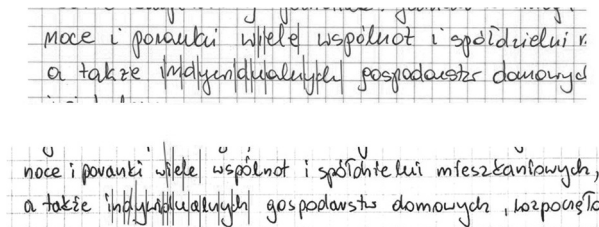 noce i poranki wiele wspólnot i spółdzielni
a także indywidualnych gospodarstw domowych
noce i poranki wiele wspólnot i spółdzielni mieszkaniowych,
a także indywidualnych gospodarstw domowych, rozpoczęło